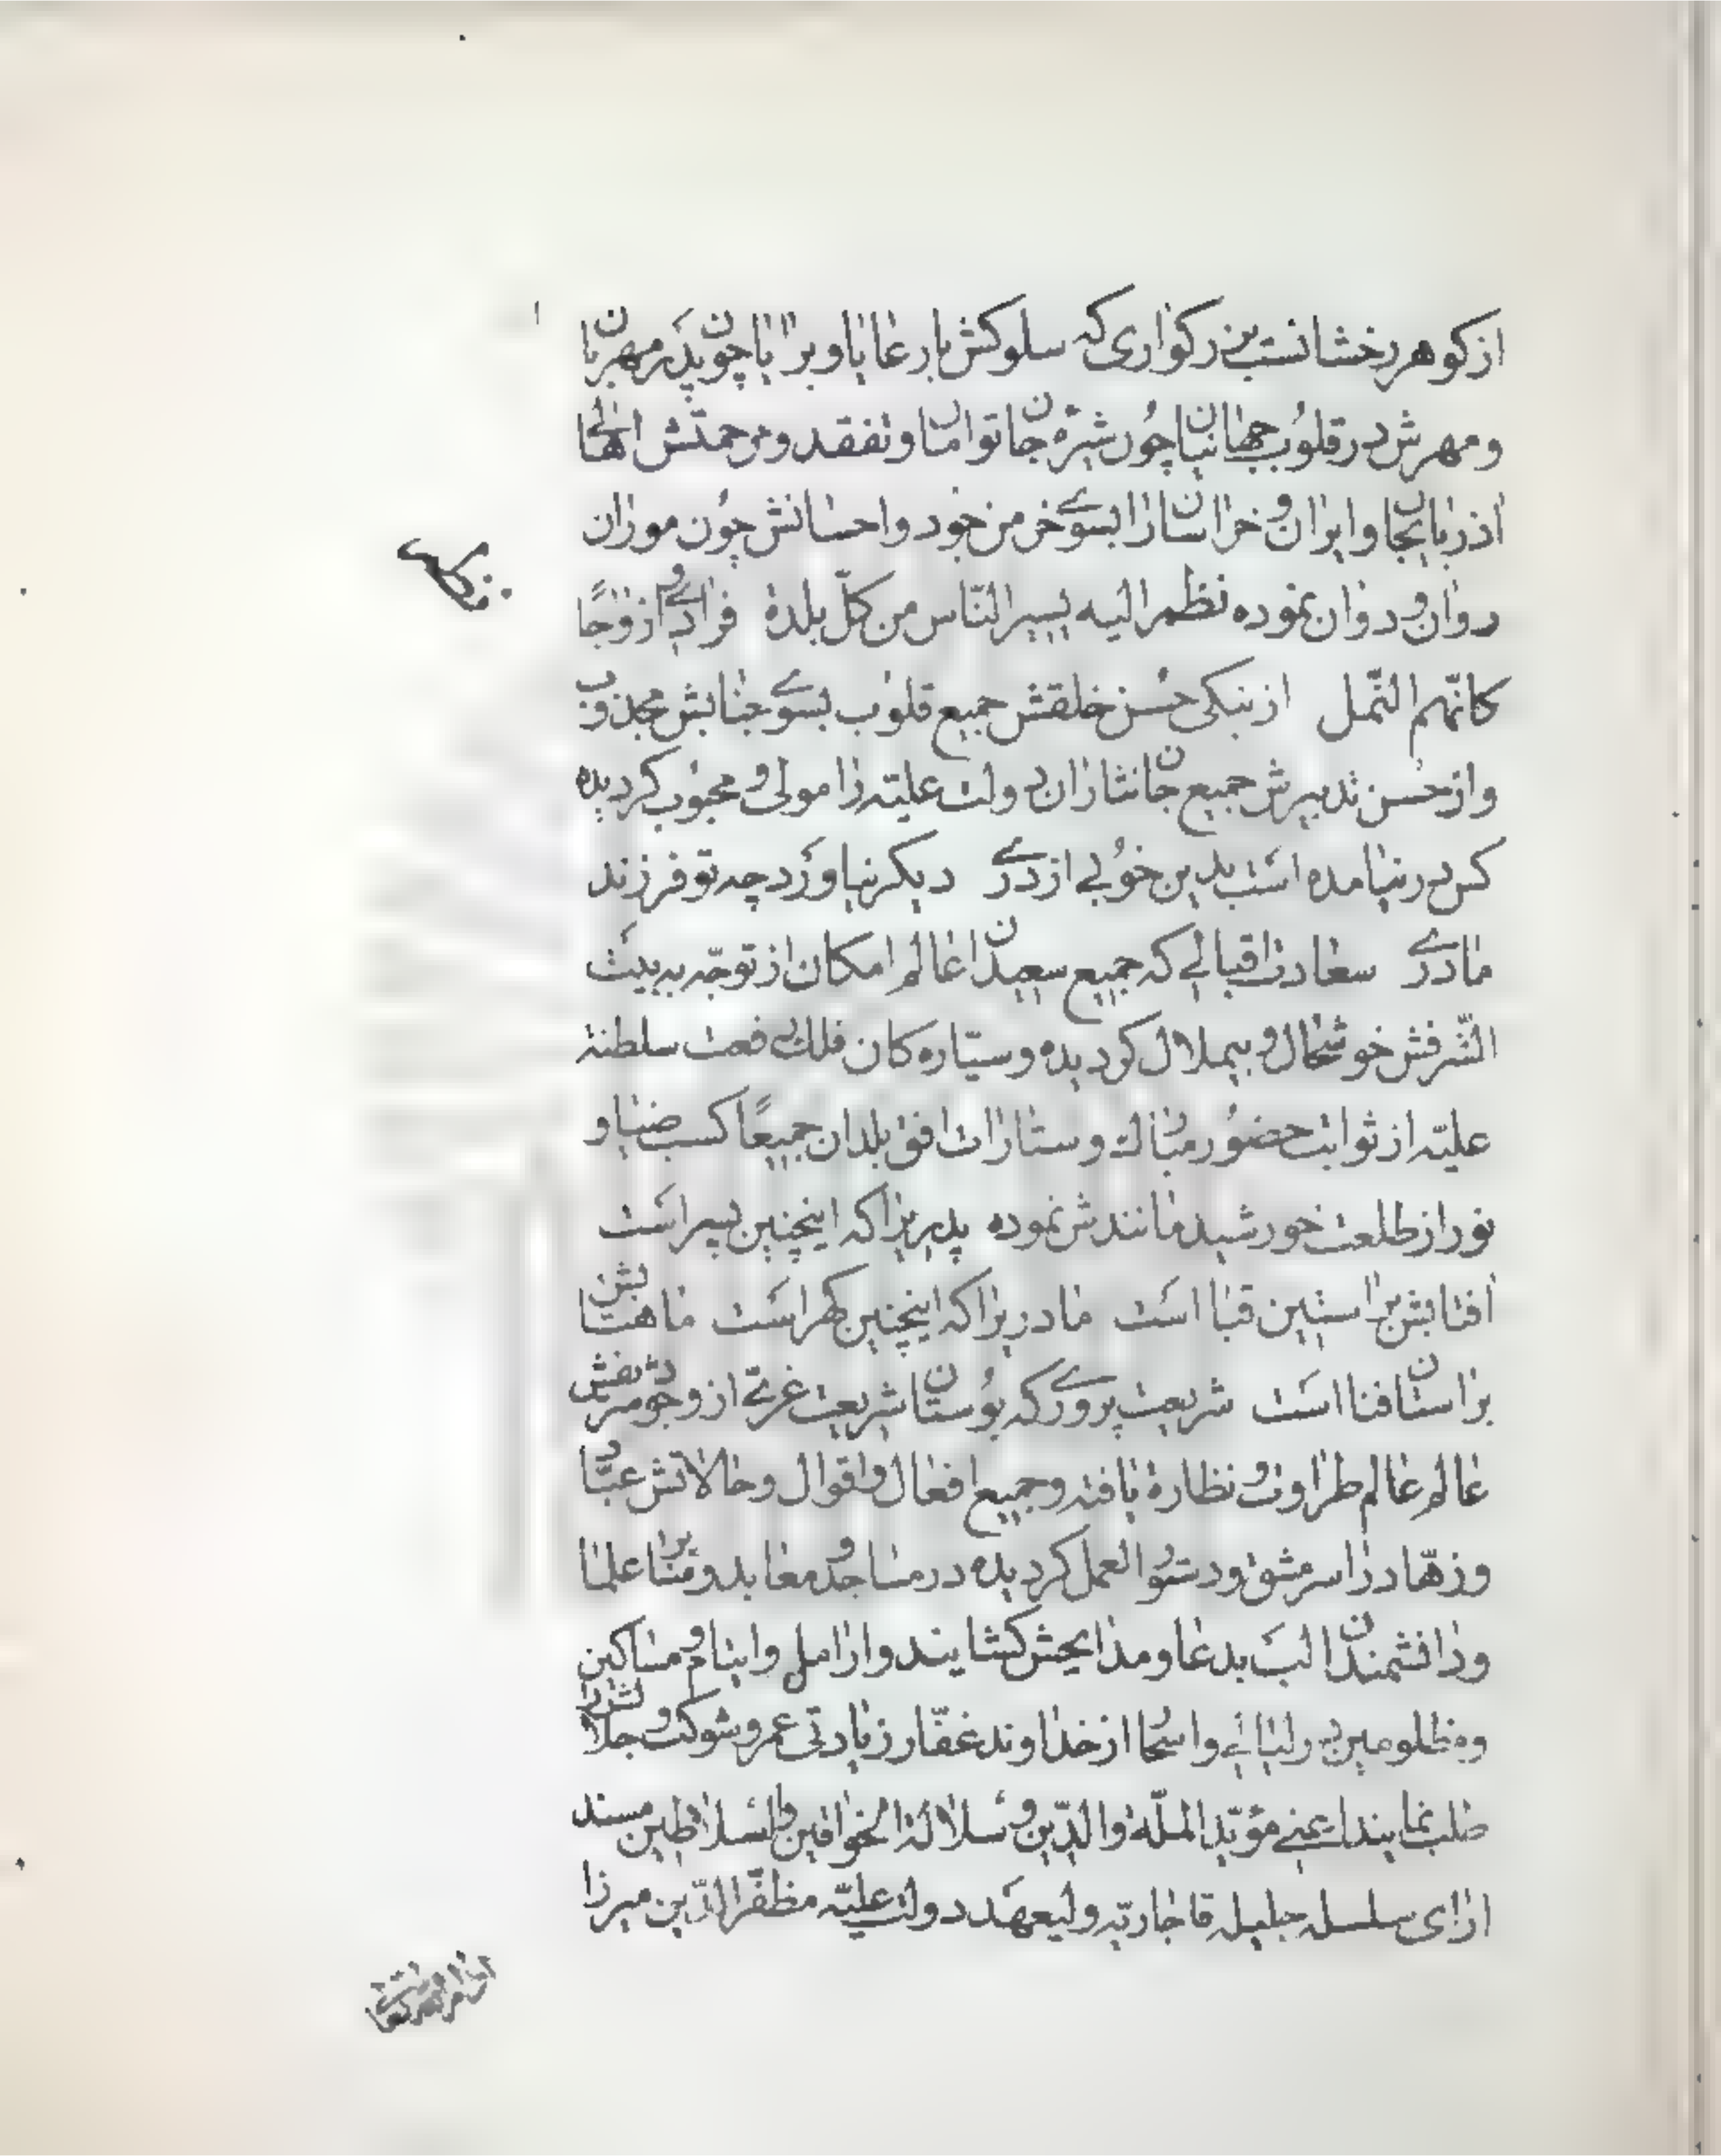 از کوهر رخشانست بزرکواری که سلوکش بارعایا و برایا چون پدر مهربان
و مهرش در قلوب جهانیان چون شیرهٔ جان توامان و تفقد و مرحمتش اهالی
آذربایجان و ایران و خراسان را بسوی خرمن جود و احسانش چون موران
روان و دوان نموده نظم الیه یسیر النّاس من کلّ بلدة فرادی و ازوٰجًا
کانّهم النّمل از نیکی حسن خلقش جمیع قلوب بسوی جنابش مجذوب
و از حسن تدبیرش جمیع جان نثاران دولت علیّه را مولی و محبوب کردیده
کس در نیامده است بدین خوبی از دری دیکر نیاورد چه تو فرزند
مادری سعادت اقبالی که جمیع سعیدان عالم امکان از توجّه به بیت
الشّرفش خوشحال و بیملال کردیده و سیّاره کان فلک رفعت سلطنة
علیّه از ثوابت حضور مبارک و ستارات افق بلدان جمیعًا کسب ضیا و
نور از طلعت خورشید مانندش نموده پدریرا که اینچنین پسر است
آفتابش بر استین قبا است مادریرا که اینچنین کهر است ماهتابش
بر استان فنا است شریعت پروری که بوستان شریعت غرّی از وجود شریفش
عالم عالم طراوت و نظاره یافته و جمیع افعال و اقوال و حالاتش عبّاد
و زهّاد را سرمشق و دستور العمل کردیده در مساجد و معابد و منابر علما
و دانشمندان لب بدعا و مدایحش کشایند و ارامل و ایتام و مساکین
و مظلومین در لیالی و اسحار از خداوند غفّار زیادتی عمر و شوکت و جلالش را
طلب نمایند اعنی مؤیّد الملّة والدّین و سلالة الخواقین والسلاطین مسند
ارای سلسله جلیله قاجاریّه ولیعهد دولت علیّه مظفّر الدّین میرزا